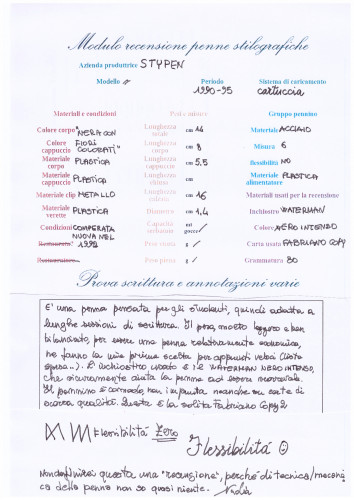 Modulo recensione penne stilografiche
Azienda produttrice STYPEN
Modello Periodo Sistema di caricamento
1990-95 cartuccia
Materiali e condizioni Pesi e misure Gruppo pennino
Colore corpo "NERA CON Lunghezza totale cm 14 Materiale ACCIAIO
Colore cappuccio FIORI COLORATI" Lunghezza corpo cm 8 Misura 6
Materiale corpo PLASTICA Lunghezza cappuccio cm 5.5 flessibilità NO
Materiale cappuccio PLASTICA Lunghezza chiusa cm Materiale alimentatore PLASTICA
Materiale clip METALLO Lunghezza calzata cm 16 Materiali usati per la recensione
Materiale verette PLASTICA Diametro cm 1,4 Inchiostro WATERMAN
Condizioni COMPERATA NUOVA NEL Capacità serbatoio ml gocce / Colore NERO INTENSO
1992 Peso vuota g / Carta usata FABRIANO COPY
Peso piena g / Grammatura 80
Prova scrittura e annotazioni varie
E' una penna pensata per gli studenti, quindi adatta a
lunghe sessioni di scrittura. Il peso, molto leggero e ben
bilanciato, per essere una penna relativamente economica,
ne fanno la mia prima scelta per appunti veloci (lista
spesa..). L'inchiostro usato è il WATERMAN NERO INTENSO,
che sicuramente aiuta la penna ad essere scorrevole.
Il pennino è comodo, non impunta neanche su carte di
scarsa qualità. Questa è la solita Fabriano Copy 2
Flessibilità Zero
Flessibilità 0
Non definirei questa una "recensione", perché di tecnica/meccani
ca della penna non so quasi niente. Nadia